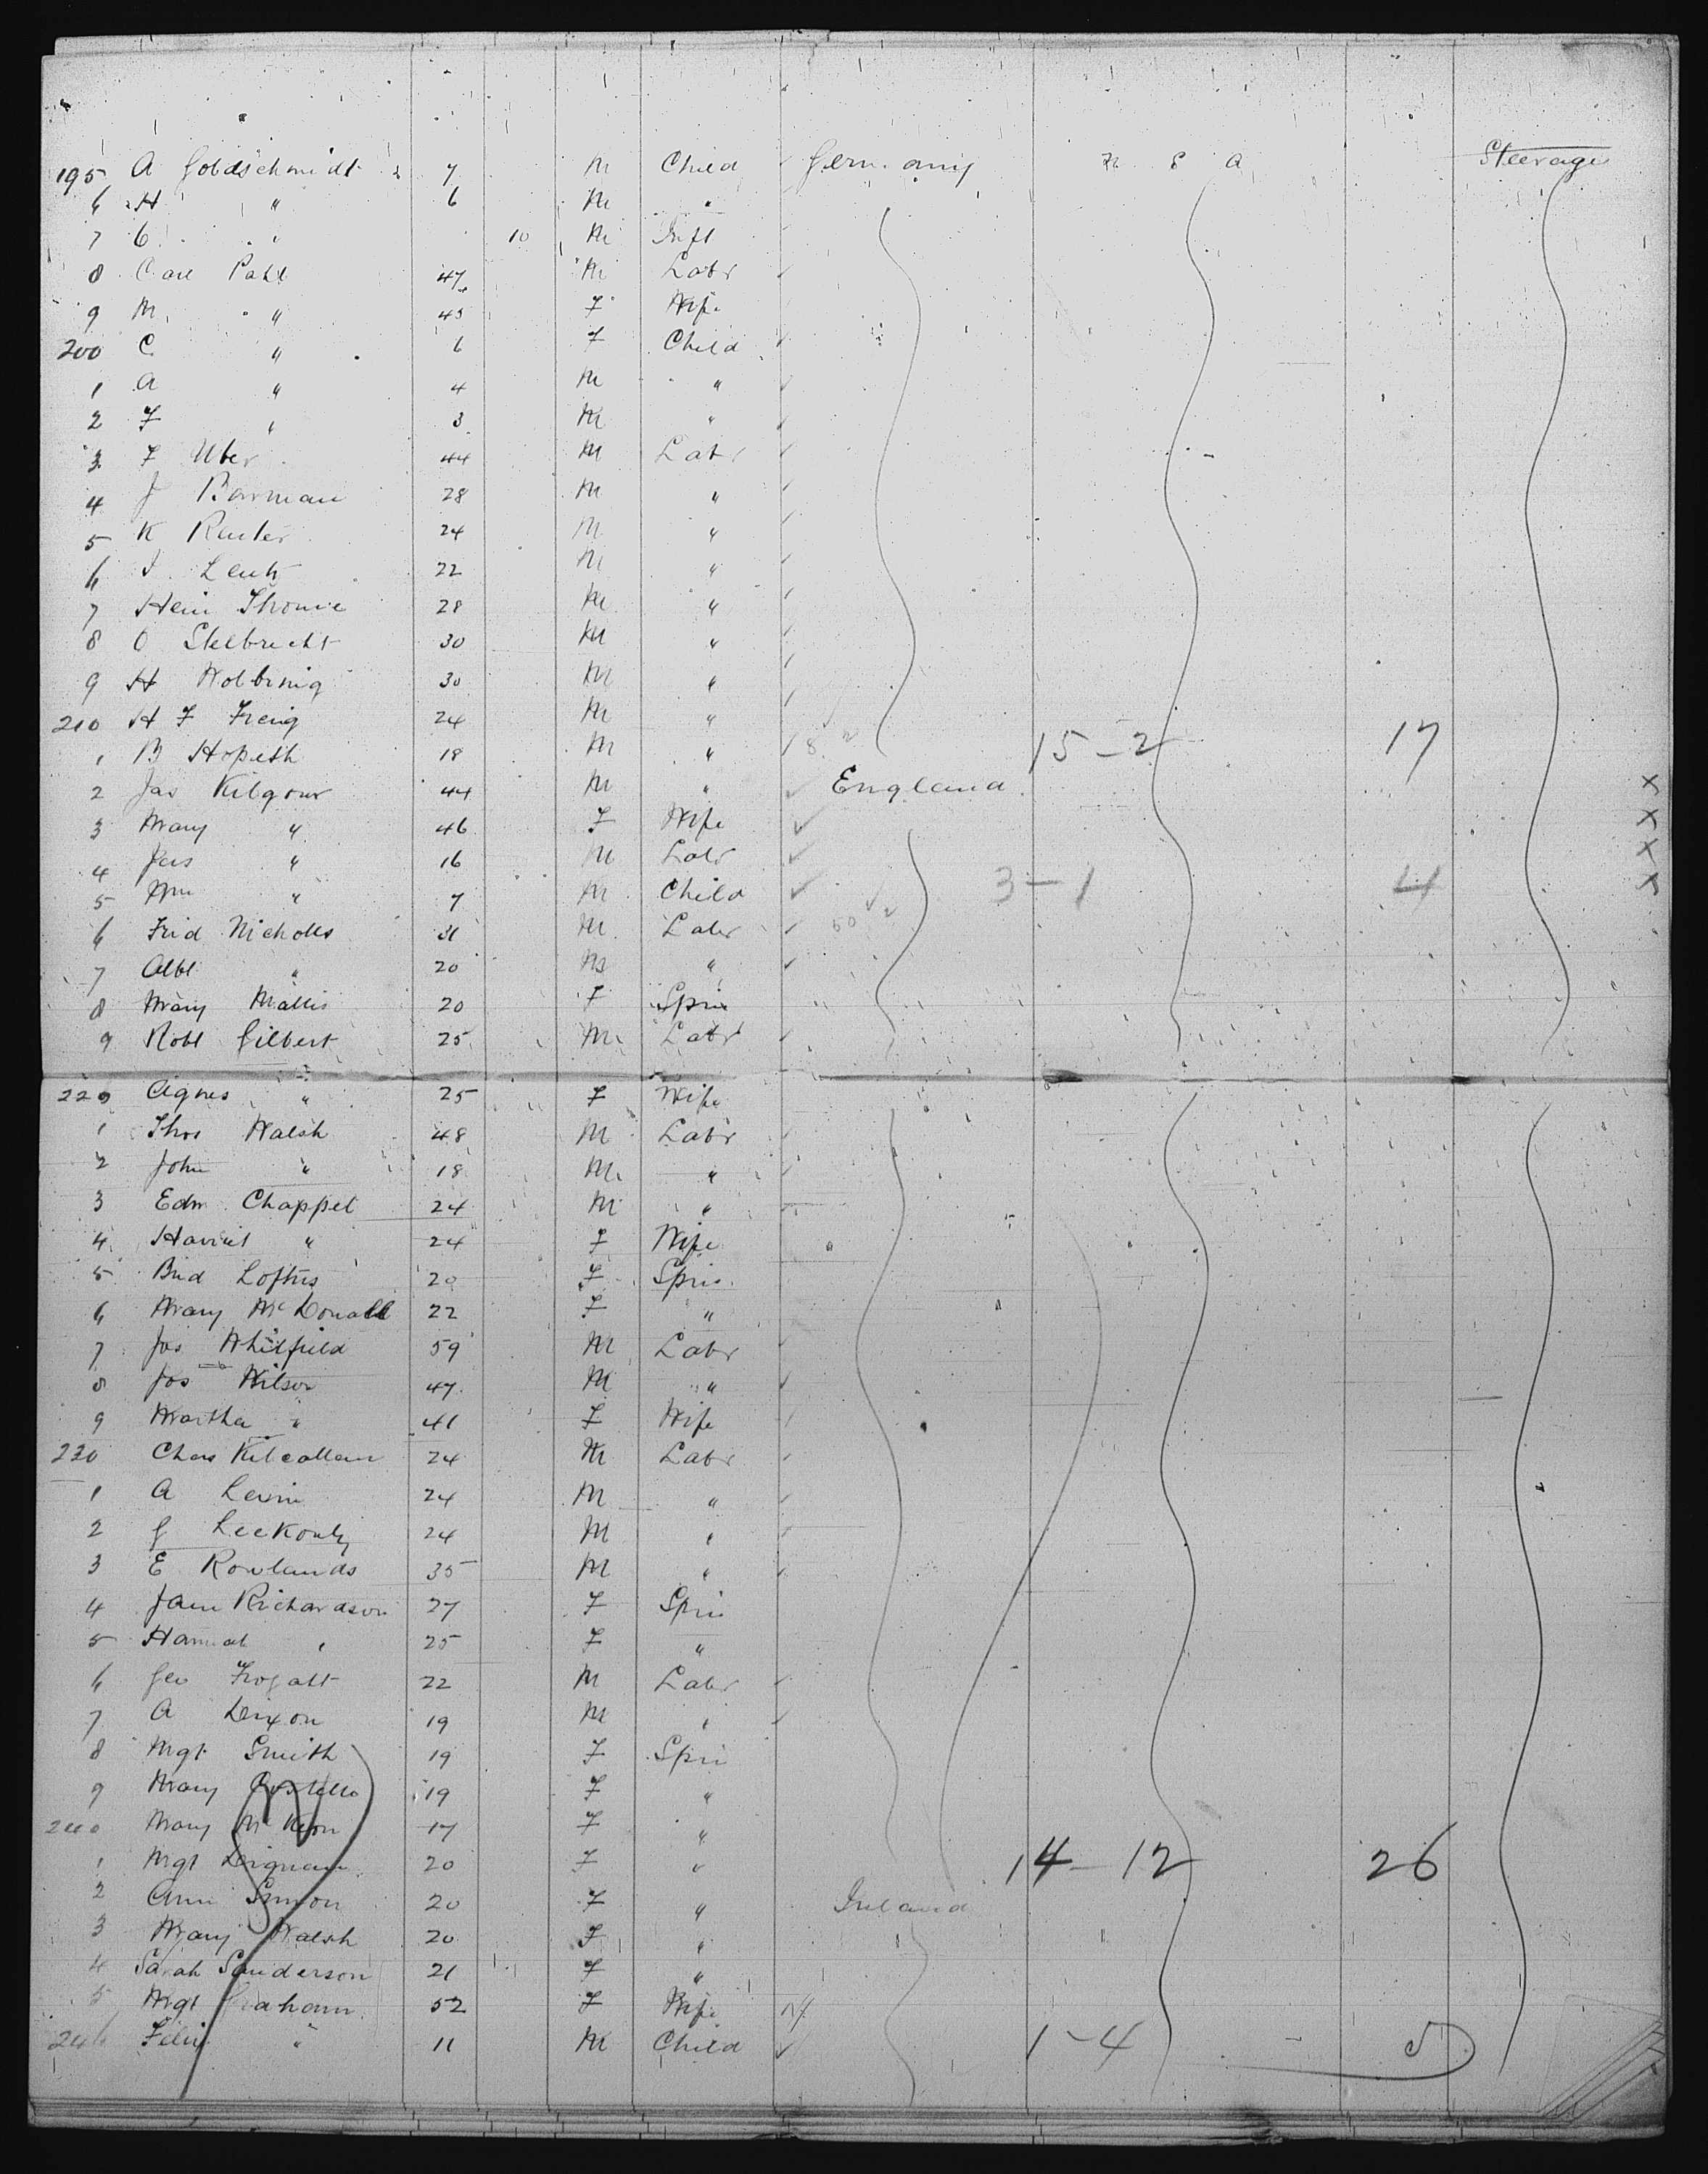 195 A Goldschmidt 7 M Child Germany U S A Steerage
6 H " 6 M "
7 C " 10 M Inft
8 Carl Pahl 47 M Labr
9 M " 45 F Wife
200 C " 6 F Child
1 A " 4 M "
2 F " 3 M "
3 F Uber 44 M Labr
4 J Barman 28 M "
5 K Reuter 24 M "
6 J Lentz 22 M "
7 Hein Thomie 28 M "
8 O Stelbrecht 30 M "
9 H Wolbrnig 30 M "
210 H F Freig 24 M "
1 B Hopeth 18 M " 15-2 17
2 Jas Kilgour 44 M " England X
3 Mary " 46 F Wife X
4 Jas " 16 M Labr X
5 Wm " 7 M Child 3-1 4 X
6 Frid Nicholls 31 M Labr
7 Albt " 20 M "
8 Mary Mallis 20 F Spin
9 Robt Gilbert 25 M Labr
220 Agnes " 25 F Wife
1 Thos Walsh 48 M Labr
2 John " 18 M "
3 Edm Chappel 24 M "
4 Harriet " 24 F Wife
5 Brid Loftus 20 F Spin
6 Mary McDonall 22 F "
7 Jos Whitfield 59 M Labr
8 Jos Wilson 47 M "
9 Martha " 41 F Wife
230 Chas Kilcallan 24 M Labr
1 A Levin 24 M "
2 G Leekonty 24 M "
3 E Rowlands 35 M "
4 Jane Richardson 27 F Spin
5 Hannah " 25 F "
6 Geo Frogatt 22 M Labr
7 A Dixon 19 M "
8 Mgt Smith 19 F Spin
9 Mary Costello 19 F "
240 Mary McKeon 17 F "
1 Mgt Dignam 20 F " 14-12 26
2 Ann 20 F " Ireland
3 Mary Walsh 20 F "
4 Sarah Sanderson 21 F "
5 Mgt Graham 52 F Wife
246 Felix " 11 M Child 1-4 5